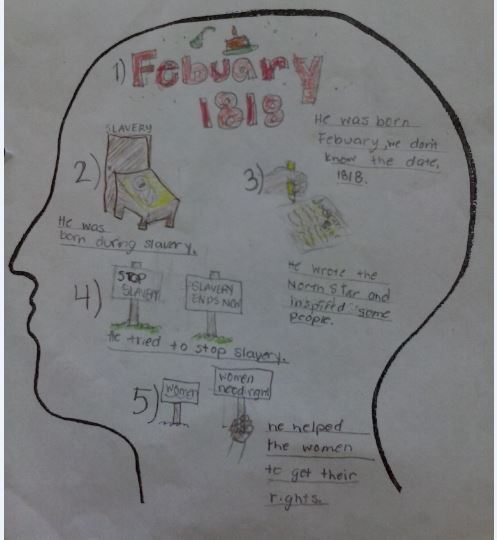 1) Febuary
1818
He was born
Febuary, we don't
know the date,
1818.
SLAVERY
2)
He was
born during slavery.
3)
He wrote the
North Star and
inspired some
people.
4)
STOP
SLAVERY
SLAVERY
ENDS NOW
He tried to stop slavery.
5)
WOMEN
women
need right
he helped
the women
to get their
rights.